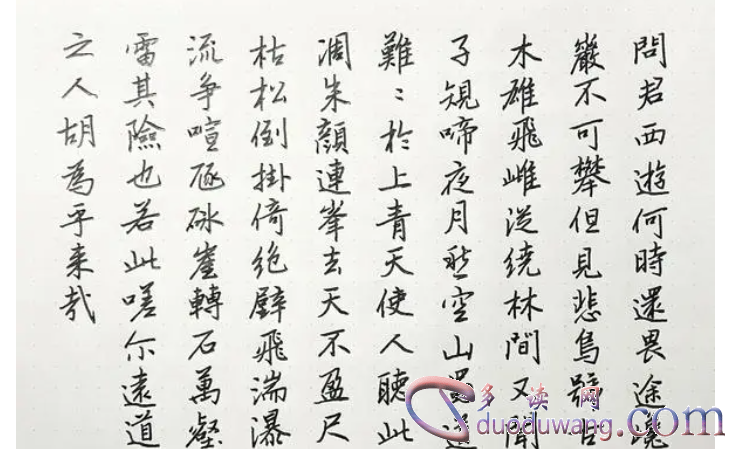 問君西遊何時還畏途巉
巖不可攀但見悲鳥號古
木雄飛雌從繞林間又聞
子規啼夜月愁空山蜀道
難〻於上青天使人聽此
凋朱顏連峯去天不盈尺
枯松倒掛倚绝壁飛湍瀑
流争喧豗砯崖轉石萬壑
雷其險也若此嗟尔遠道
之人胡為乎来哉
多读网
duoduwang.com